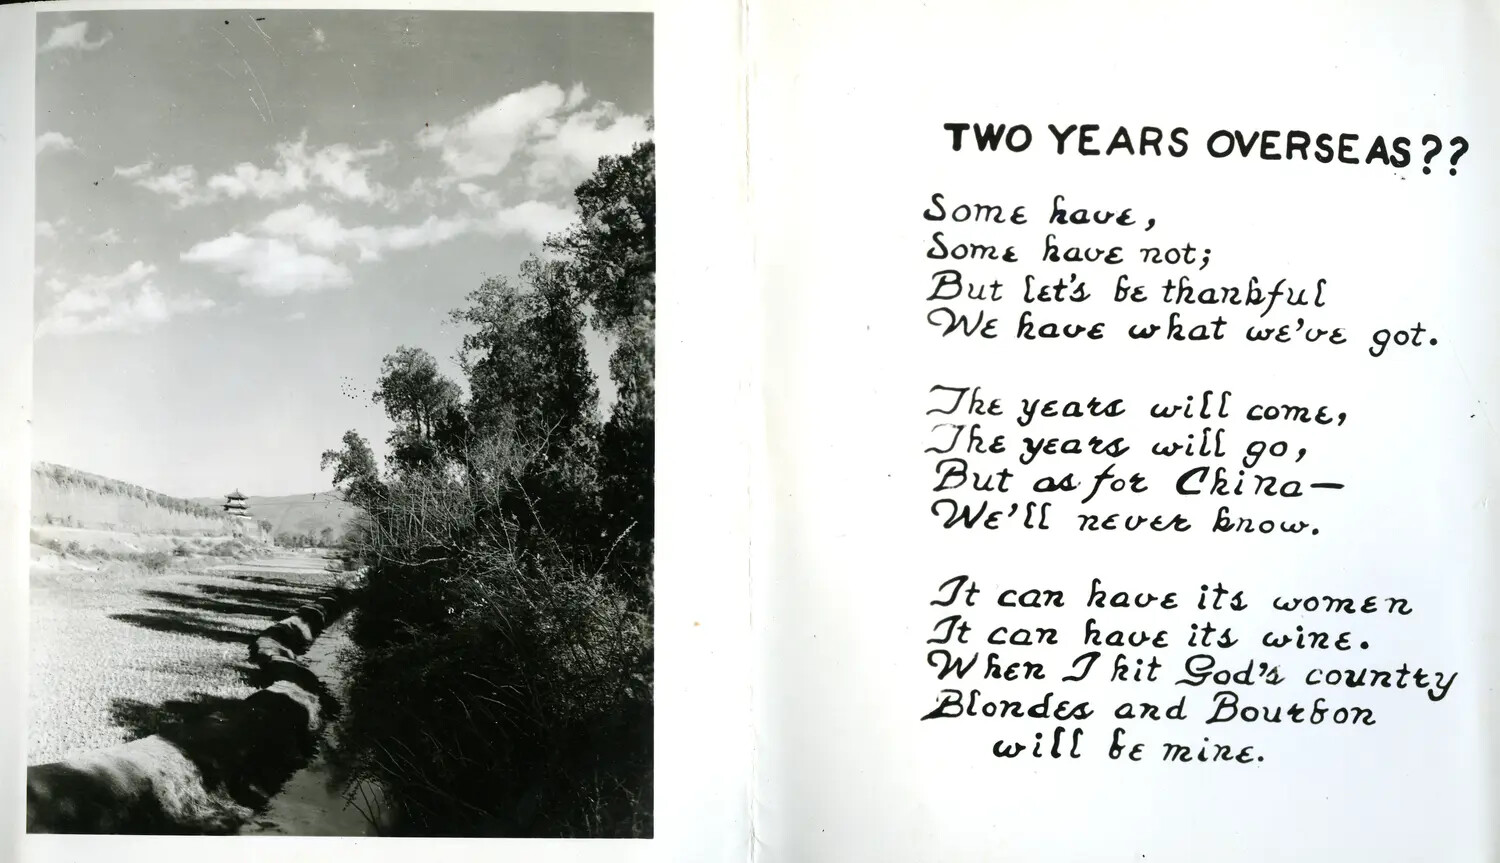 TWO YEARS OVERSEAS??
Some have,
Some have not;
But let's be thankful
We have what we've got.
The years will come,
The years will go,
But as for China—
We'll never know.
It can have its women
It can have its wine.
When I hit God's country
Blondes and Bourbon
will be mine.